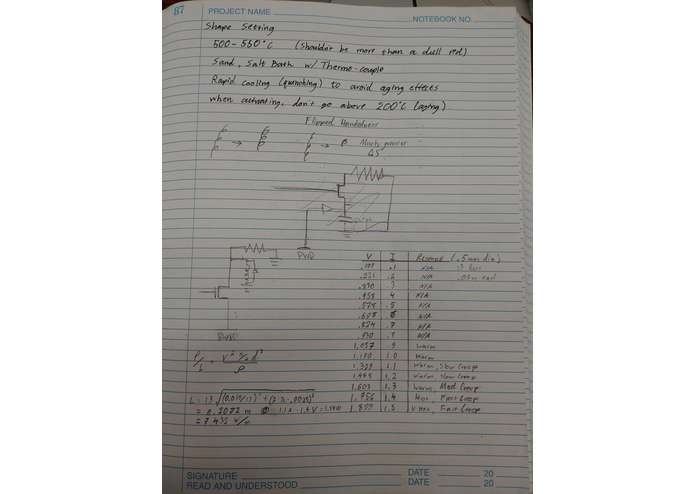 87
PROJECT NAME
NOTEBOOK NO.
Shape Setting
500-550°C (Shouldn't be more than a dull red)
Sand, Salt Bath w/ Thermo-couple
Rapid cooling (quenching) to avoid aging effects
when actuating, don't go above 200°C (aging)
Flipped Handedness
Much greater
ΔS
PWR
V I Remark (.5mm dia)
.1 N/A
.221 .2 N/A
.330 .3 N/A
.458 .4 N/A
.574 .5 N/A
.6 N/A
.824 .7 N/A
.930 N/A
1.057 .9 Warm
1.180 1.0 Warm
1.329 1.1 Warm, Slow Creep
1.2 Warm, Slow Creep
1.603 1.3 Warm, Med Creep
1.756 1.4 Hot, Fast Creep
1.5 V Hot, Fast Creep
P/L =
= 0.2072 m @ 1.1A · 1.4V = 1.54W
= 7.432 W/m
SIGNATURE
DATE 20
READ AND UNDERSTOOD
DATE 20